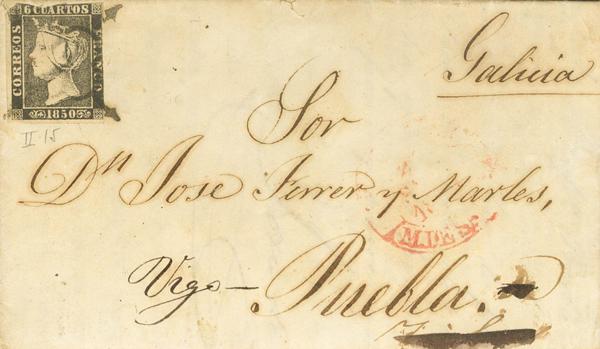 6 CUARTOS
CORREOS FRANCO
1850
II-15
Galicia
Sor
Dn Jose Ferrer y Marles,
M.DE
Vigo— Puebla.